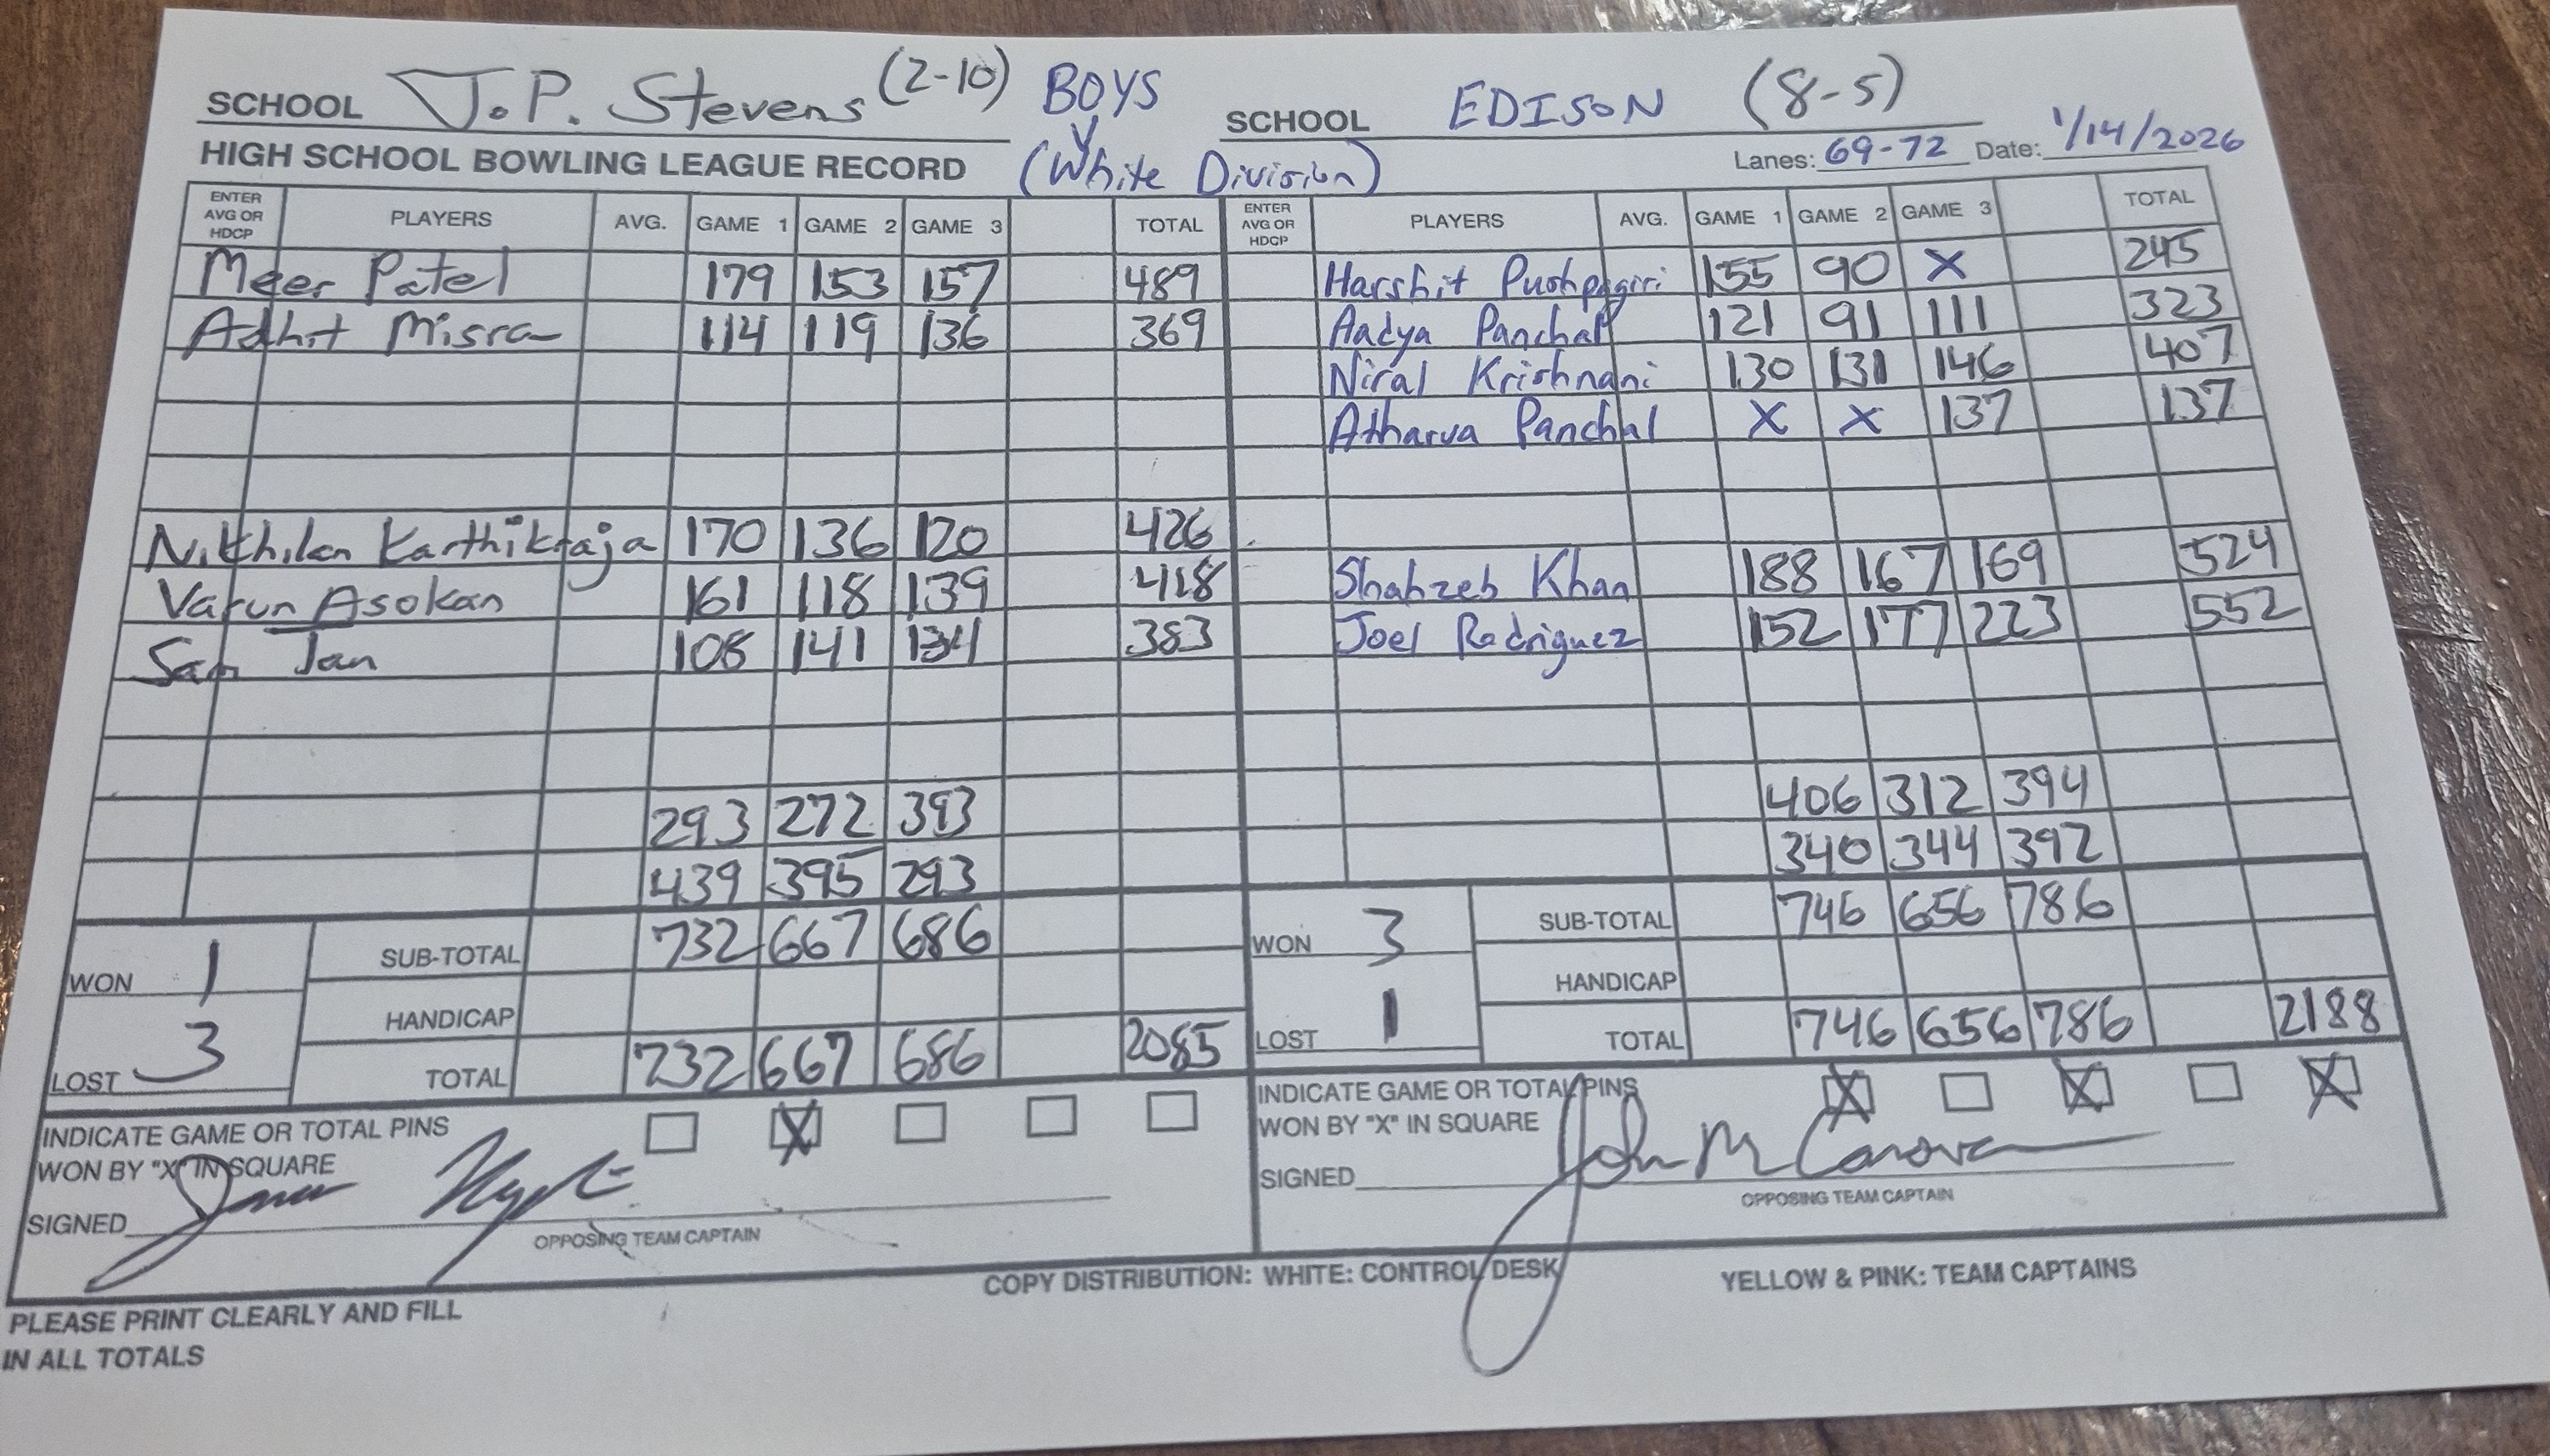 SCHOOL J.P. Stevens (2-10) BOYS SCHOOL EDISON (8-5)
HIGH SCHOOL BOWLING LEAGUE RECORD (White Division) Lanes: 69-72 Date: 1/14/2026
ENTER AVG OR HDCP PLAYERS AVG. GAME 1 GAME 2 GAME 3 TOTAL ENTER AVG OR HDCP PLAYERS AVG. GAME 1 GAME 2 GAME 3 TOTAL
Meer Patel 179 153 157 489 Harshit Pushpagiri 155 90 X 245
Adhit Misra 114 119 136 369 Aadya Panchal 121 91 111 323
Niral Krishnani 130 131 146 407
Atharva Panchal X X 137 137
Nikhilan Karthikraja 170 136 120 426
Varun Asokan 161 118 139 418 Shahzeb Khan 188 167 169 524
Sam Jan 108 141 134 383 Joel Rodriguez 152 177 223 552
293 272 393 406 312 394
439 395 293 340 344 392
WON 1 SUB-TOTAL 732 667 686 WON 3 SUB-TOTAL 746 656 786
HANDICAP HANDICAP
LOST 3 TOTAL 732 667 686 2085 LOST 1 TOTAL 746 656 786 2188
INDICATE GAME OR TOTAL PINS X INDICATE GAME OR TOTAL PINS X X X
WON BY "X" IN SQUARE WON BY "X" IN SQUARE
SIGNED SIGNED John M Canova
OPPOSING TEAM CAPTAIN OPPOSING TEAM CAPTAIN
COPY DISTRIBUTION: WHITE: CONTROL DESK YELLOW & PINK: TEAM CAPTAINS
PLEASE PRINT CLEARLY AND FILL
IN ALL TOTALS